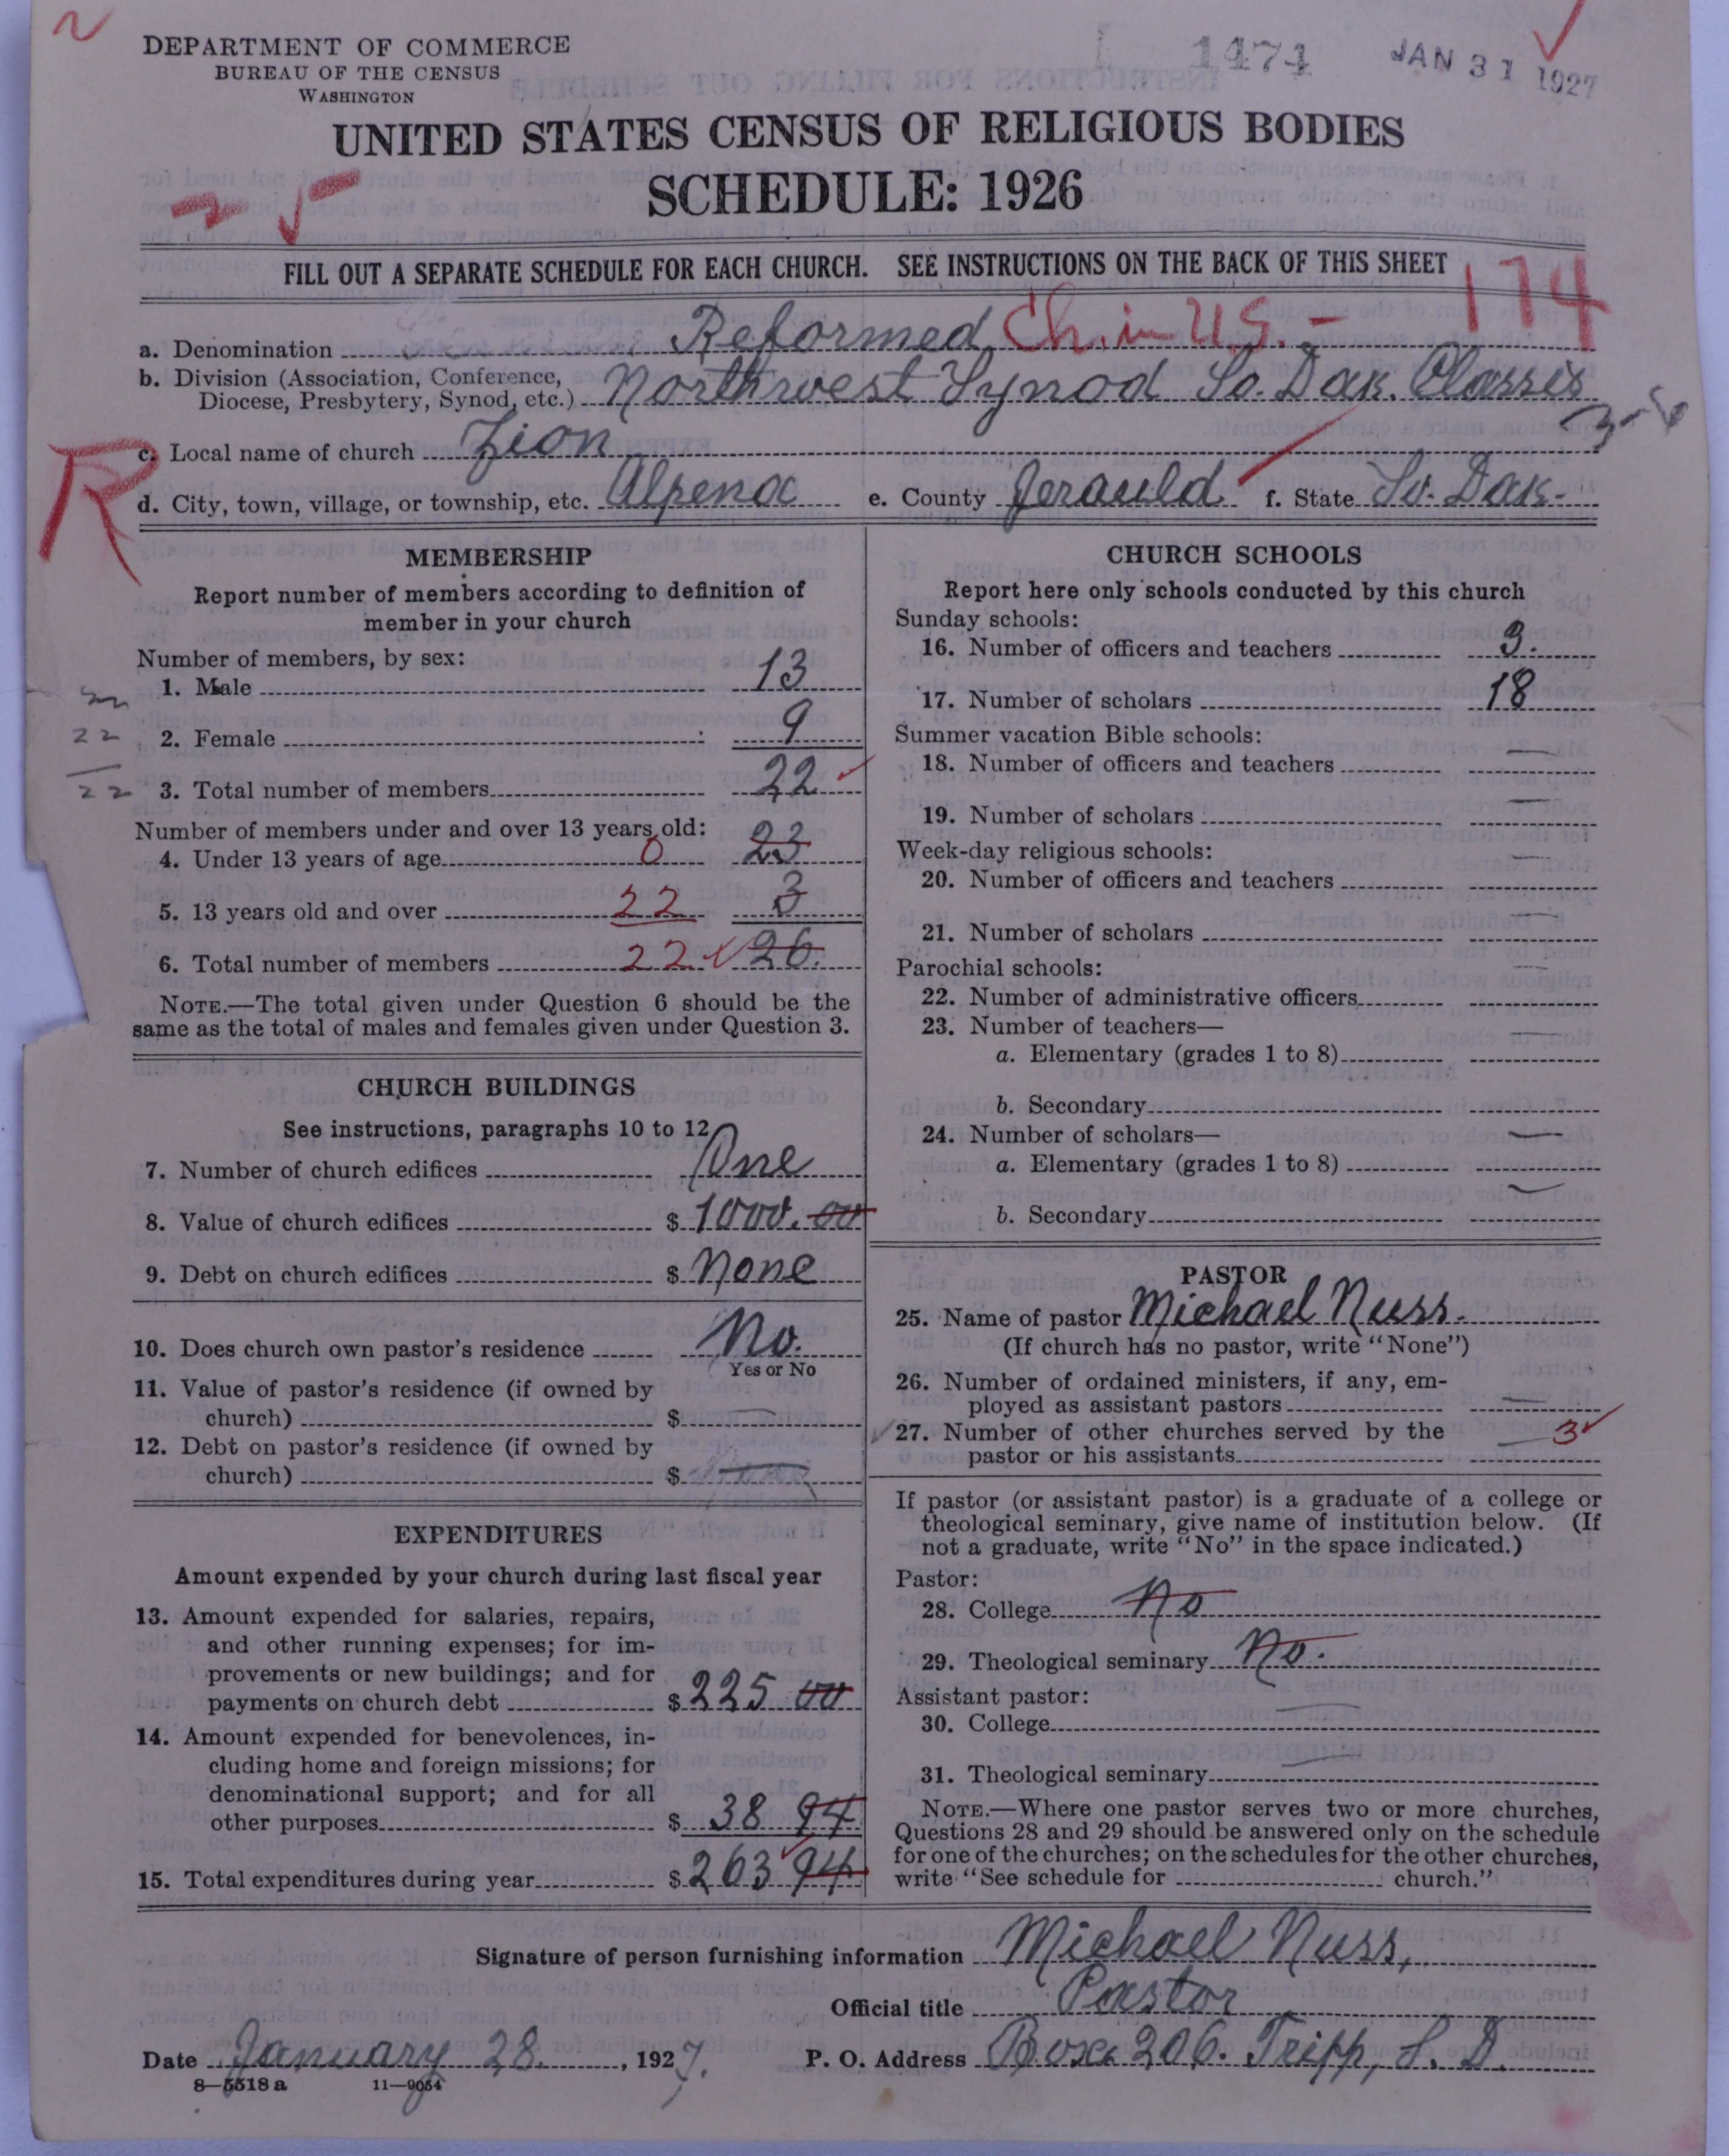 DEPARTMENT OF COMMERCE
BUREAU OF THE CENSUS
WASHINGTON
1474 JAN 31 1927
UNITED STATES CENSUS OF RELIGIOUS BODIES
SCHEDULE: 1926
FILL OUT A SEPARATE SCHEDULE FOR EACH CHURCH. SEE INSTRUCTIONS ON THE BACK OF THIS SHEET
174
a. Denomination Reformed Ch. in U.S. -
b. Division (Association, Conference, Diocese, Presbytery, Synod, etc.) Northwest Synod So. Dak. Classis
R
c. Local name of church Zion
d. City, town, village, or township, etc. Alpena e. County Jerauld f. State So. Dak.
MEMBERSHIP
Report number of members according to definition of
member in your church
Number of members, by sex:
1. Male 13
2. Female 9
22
3. Total number of members 22
22
Number of members under and over 13 years old:
4. Under 13 years of age 0 23
5. 13 years old and over 22 3
6. Total number of members 22 26.
NOTE.—The total given under Question 6 should be the
same as the total of males and females given under Question 3.
CHURCH BUILDINGS
See instructions, paragraphs 10 to 12
7. Number of church edifices One
8. Value of church edifices $ 1000.00
9. Debt on church edifices $ None
10. Does church own pastor's residence No.
Yes or No
11. Value of pastor's residence (if owned by
church) $ —
12. Debt on pastor's residence (if owned by
church) $
EXPENDITURES
Amount expended by your church during last fiscal year
13. Amount expended for salaries, repairs,
and other running expenses; for im-
provements or new buildings; and for
payments on church debt $ 225 00
14. Amount expended for benevolences, in-
cluding home and foreign missions; for
denominational support; and for all
other purposes $ 38 94
15. Total expenditures during year $ 263 94
CHURCH SCHOOLS
Report here only schools conducted by this church
Sunday schools:
16. Number of officers and teachers 3.
17. Number of scholars 18
Summer vacation Bible schools:
18. Number of officers and teachers —
19. Number of scholars —
Week-day religious schools:
20. Number of officers and teachers —
21. Number of scholars —
Parochial schools:
22. Number of administrative officers —
23. Number of teachers—
a. Elementary (grades 1 to 8) —
b. Secondary
24. Number of scholars—
a. Elementary (grades 1 to 8) —
b. Secondary —
PASTOR
25. Name of pastor Michael Nuss.
(If church has no pastor, write "None")
26. Number of ordained ministers, if any, em-
ployed as assistant pastors —
27. Number of other churches served by the
pastor or his assistants — 3
If pastor (or assistant pastor) is a graduate of a college or
theological seminary, give name of institution below. (If
not a graduate, write "No" in the space indicated.)
Pastor:
28. College No
29. Theological seminary No.
Assistant pastor:
30. College —
31. Theological seminary —
NOTE.—Where one pastor serves two or more churches,
Questions 28 and 29 should be answered only on the schedule
for one of the churches; on the schedules for the other churches,
write "See schedule for church."
Signature of person furnishing information Michael Nuss,
Official title Pastor
Date January 28, 1927. P. O. Address Box 206. Tripp, S. D.
8—5518 a 11—9054